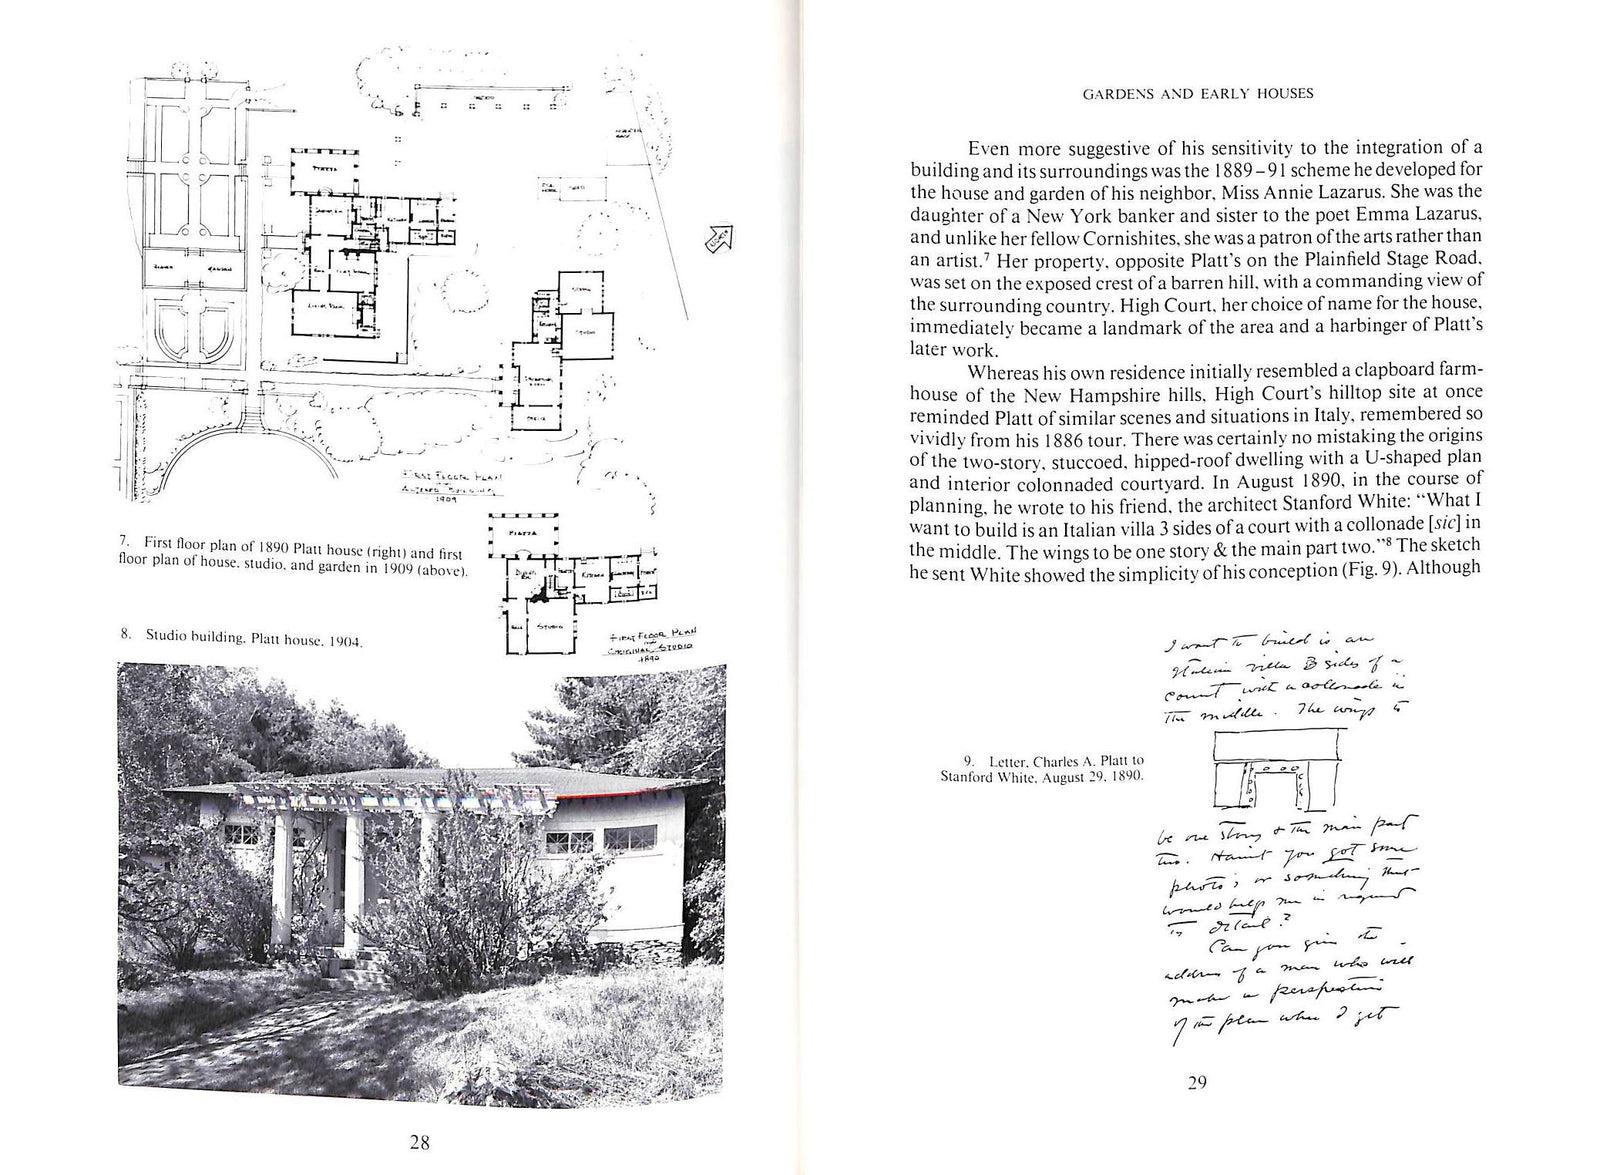 PIAZZA
LIVING ROOM
STUDIO
FIRST FLOOR PLAN
ALTERED BUILDING
1909
7. First floor plan of 1890 Platt house (right) and first
floor plan of house, studio, and garden in 1909 (above).
PIAZZA
KITCHEN
HALL
STUDIO
FIRST FLOOR PLAN
ORIGINAL STUDIO
1890
8. Studio building, Platt house, 1904.
28
GARDENS AND EARLY HOUSES
Even more suggestive of his sensitivity to the integration of a
building and its surroundings was the 1889–91 scheme he developed for
the house and garden of his neighbor, Miss Annie Lazarus. She was the
daughter of a New York banker and sister to the poet Emma Lazarus,
and unlike her fellow Cornishites, she was a patron of the arts rather than
an artist.⁷ Her property, opposite Platt's on the Plainfield Stage Road,
was set on the exposed crest of a barren hill, with a commanding view of
the surrounding country. High Court, her choice of name for the house,
immediately became a landmark of the area and a harbinger of Platt's
later work.
Whereas his own residence initially resembled a clapboard farm-
house of the New Hampshire hills, High Court's hilltop site at once
reminded Platt of similar scenes and situations in Italy, remembered so
vividly from his 1886 tour. There was certainly no mistaking the origins
of the two-story, stuccoed, hipped-roof dwelling with a U-shaped plan
and interior colonnaded courtyard. In August 1890, in the course of
planning, he wrote to his friend, the architect Stanford White: "What I
want to build is an Italian villa 3 sides of a court with a collonade [sic] in
the middle. The wings to be one story & the main part two."⁸ The sketch
he sent White showed the simplicity of his conception (Fig. 9). Although
I want to build is an
Italian villa 3 sides of a
court with a collonade in
the middle. The wings to
9. Letter, Charles A. Platt to
Stanford White, August 29, 1890.
be one story & the main part
two. Haven't you got some
photo's or something that
would help me in regard
to detail?
Can you give the
address of a man who will
make a perspective
of the plan when I get
29